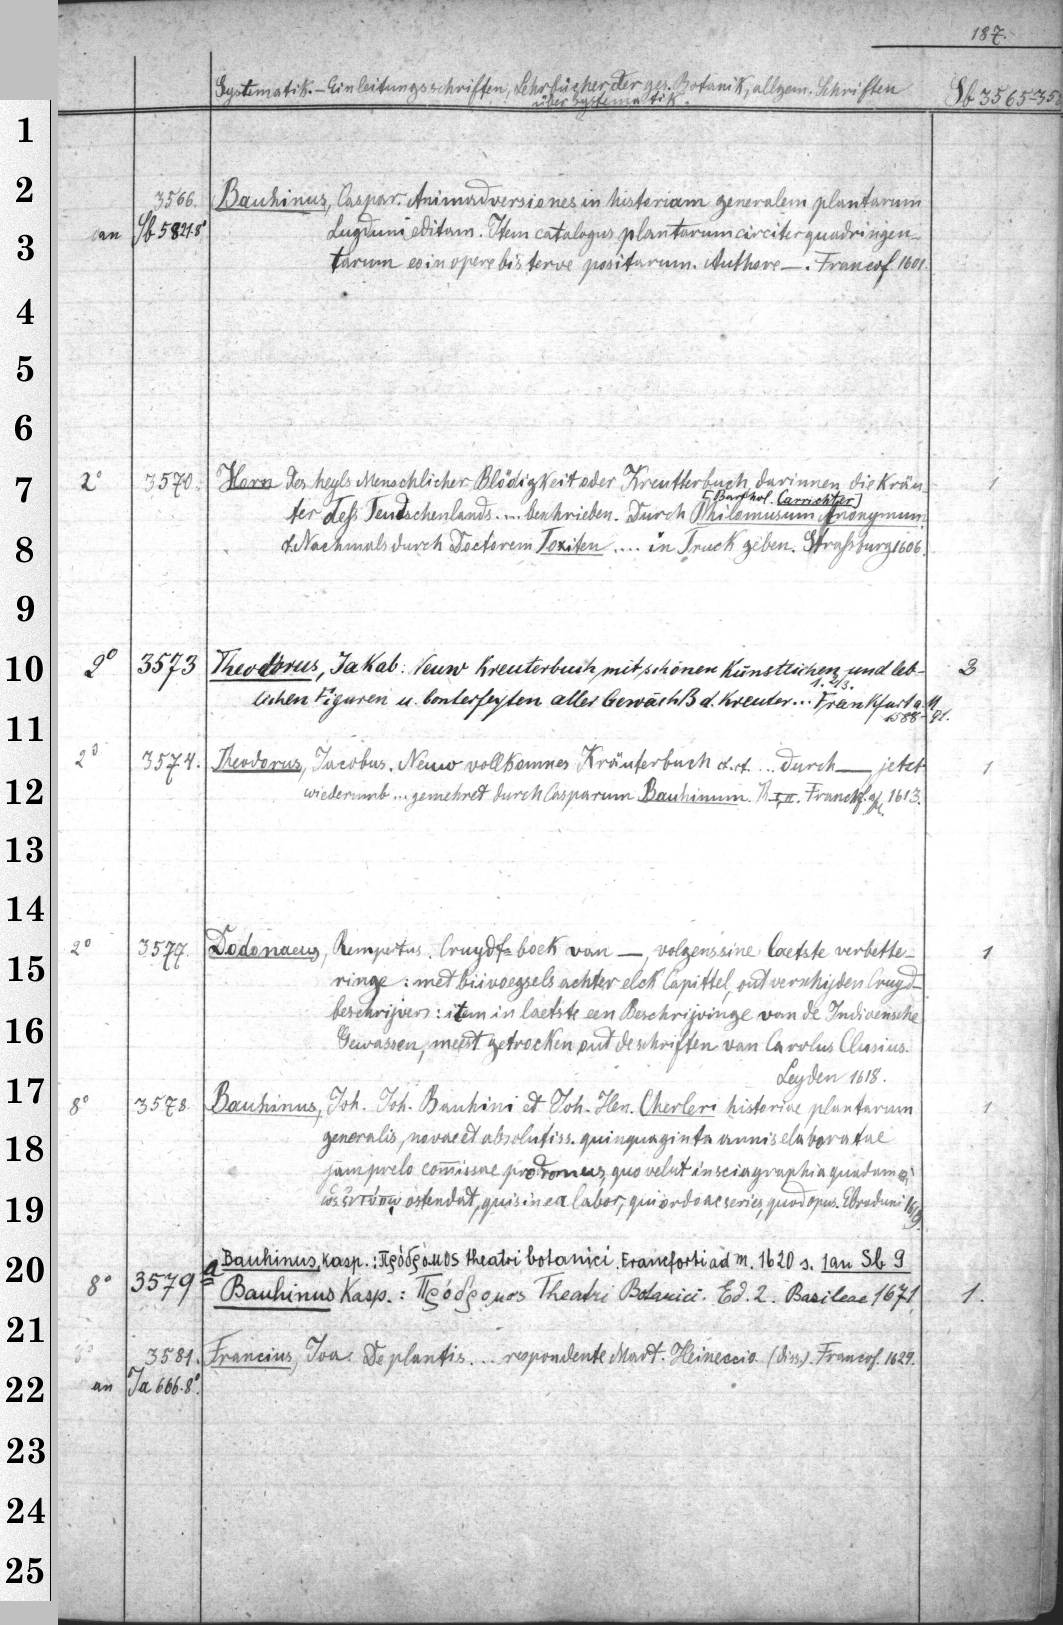 187.
Systematik. – Einleitungsschriften, Lehrbücher der ges. Botanik, allgem. Schriften Sb 3565-35
über Systematik.
1
2
3
4
5
6
7
8
9
10
11
12
13
14
15
16
17
18
19
20
21
22
23
24
25
3566. Bauhinus, Caspar. Animadversiones in historiam generalem plantarum
an Sb 5821.8° Lugduni editam. Item catalogus plantarum circiter quadringen-
tarum eo in opere bis terve positarum. Authore —. Francof. 1601.
2° 3570. Horn des heyls Menschlicher Blödigkeit oder Kreutterbuch, darinnen die Kräu- 1
[Barthol. Carrichter]
ter deß Teudschenlands .... beschrieben. Durch Philomusum Anonymum
Nachmals durch Doctorem Toxiten .... in Truck geben. Straßburg 1606.
2° 3573 Theodorus, Jakab: Neuw Kreuterbuch, mit schönen künstlichen und leb- 3
1. 2/3.
lichen Figuren u. Conterfeyten aller Gewächß d. Kreuter... Frankfurt a. M
1588-91.
2° 3574. Theodorus, Jacobus. Neuw vollkomnes Kräuterbuch ... durch — jetzt 1
wiederumb ... gemehret durch Casparum Bauhinum. Th I, II. Franckf. a/M. 1613.
2° 3577. Dodonaeus, Rempertus. Cruydt-boek van —, volgens sine laetste verbette- 1
ringe: met biivoegsels achter elck Capittel, out verschijden Cruyd-
beschrijvers: item in laetste een Beschrijvinge van de Indiaensche
Gewassen, meest getrocken out de schriften van Carolus Clusius.
Leyden 1618.
8° 3578. Bauhinus, Joh. Joh. Bauhini et Joh. Hen. Cherleri historiae plantarum 1
generalis, novae et absolutiss. quinquaginta annis elaboratae
jam prelo commissae prodromus, quo velut in sciagraphia quadam &
ὡς ἐν τύπῳ ostendat, quis in ea labor, qui ordo ac series, quod opus. Ebroduni 1619.
a Bauhinus, Kasp.: Πρόδρομος theatri botanici. Francforti ad M. 1620 s. 1 an Sb 9
8° 3579 Bauhinus Kasp.: Πρόδρομος Theatri Botanici. Ed. 2. Basileae 1671 1.
3581. Francius, Joa. De plantis ... respondente Mart. Heineccio (diss.) Francof. 1629.
an Ja 666.8°.